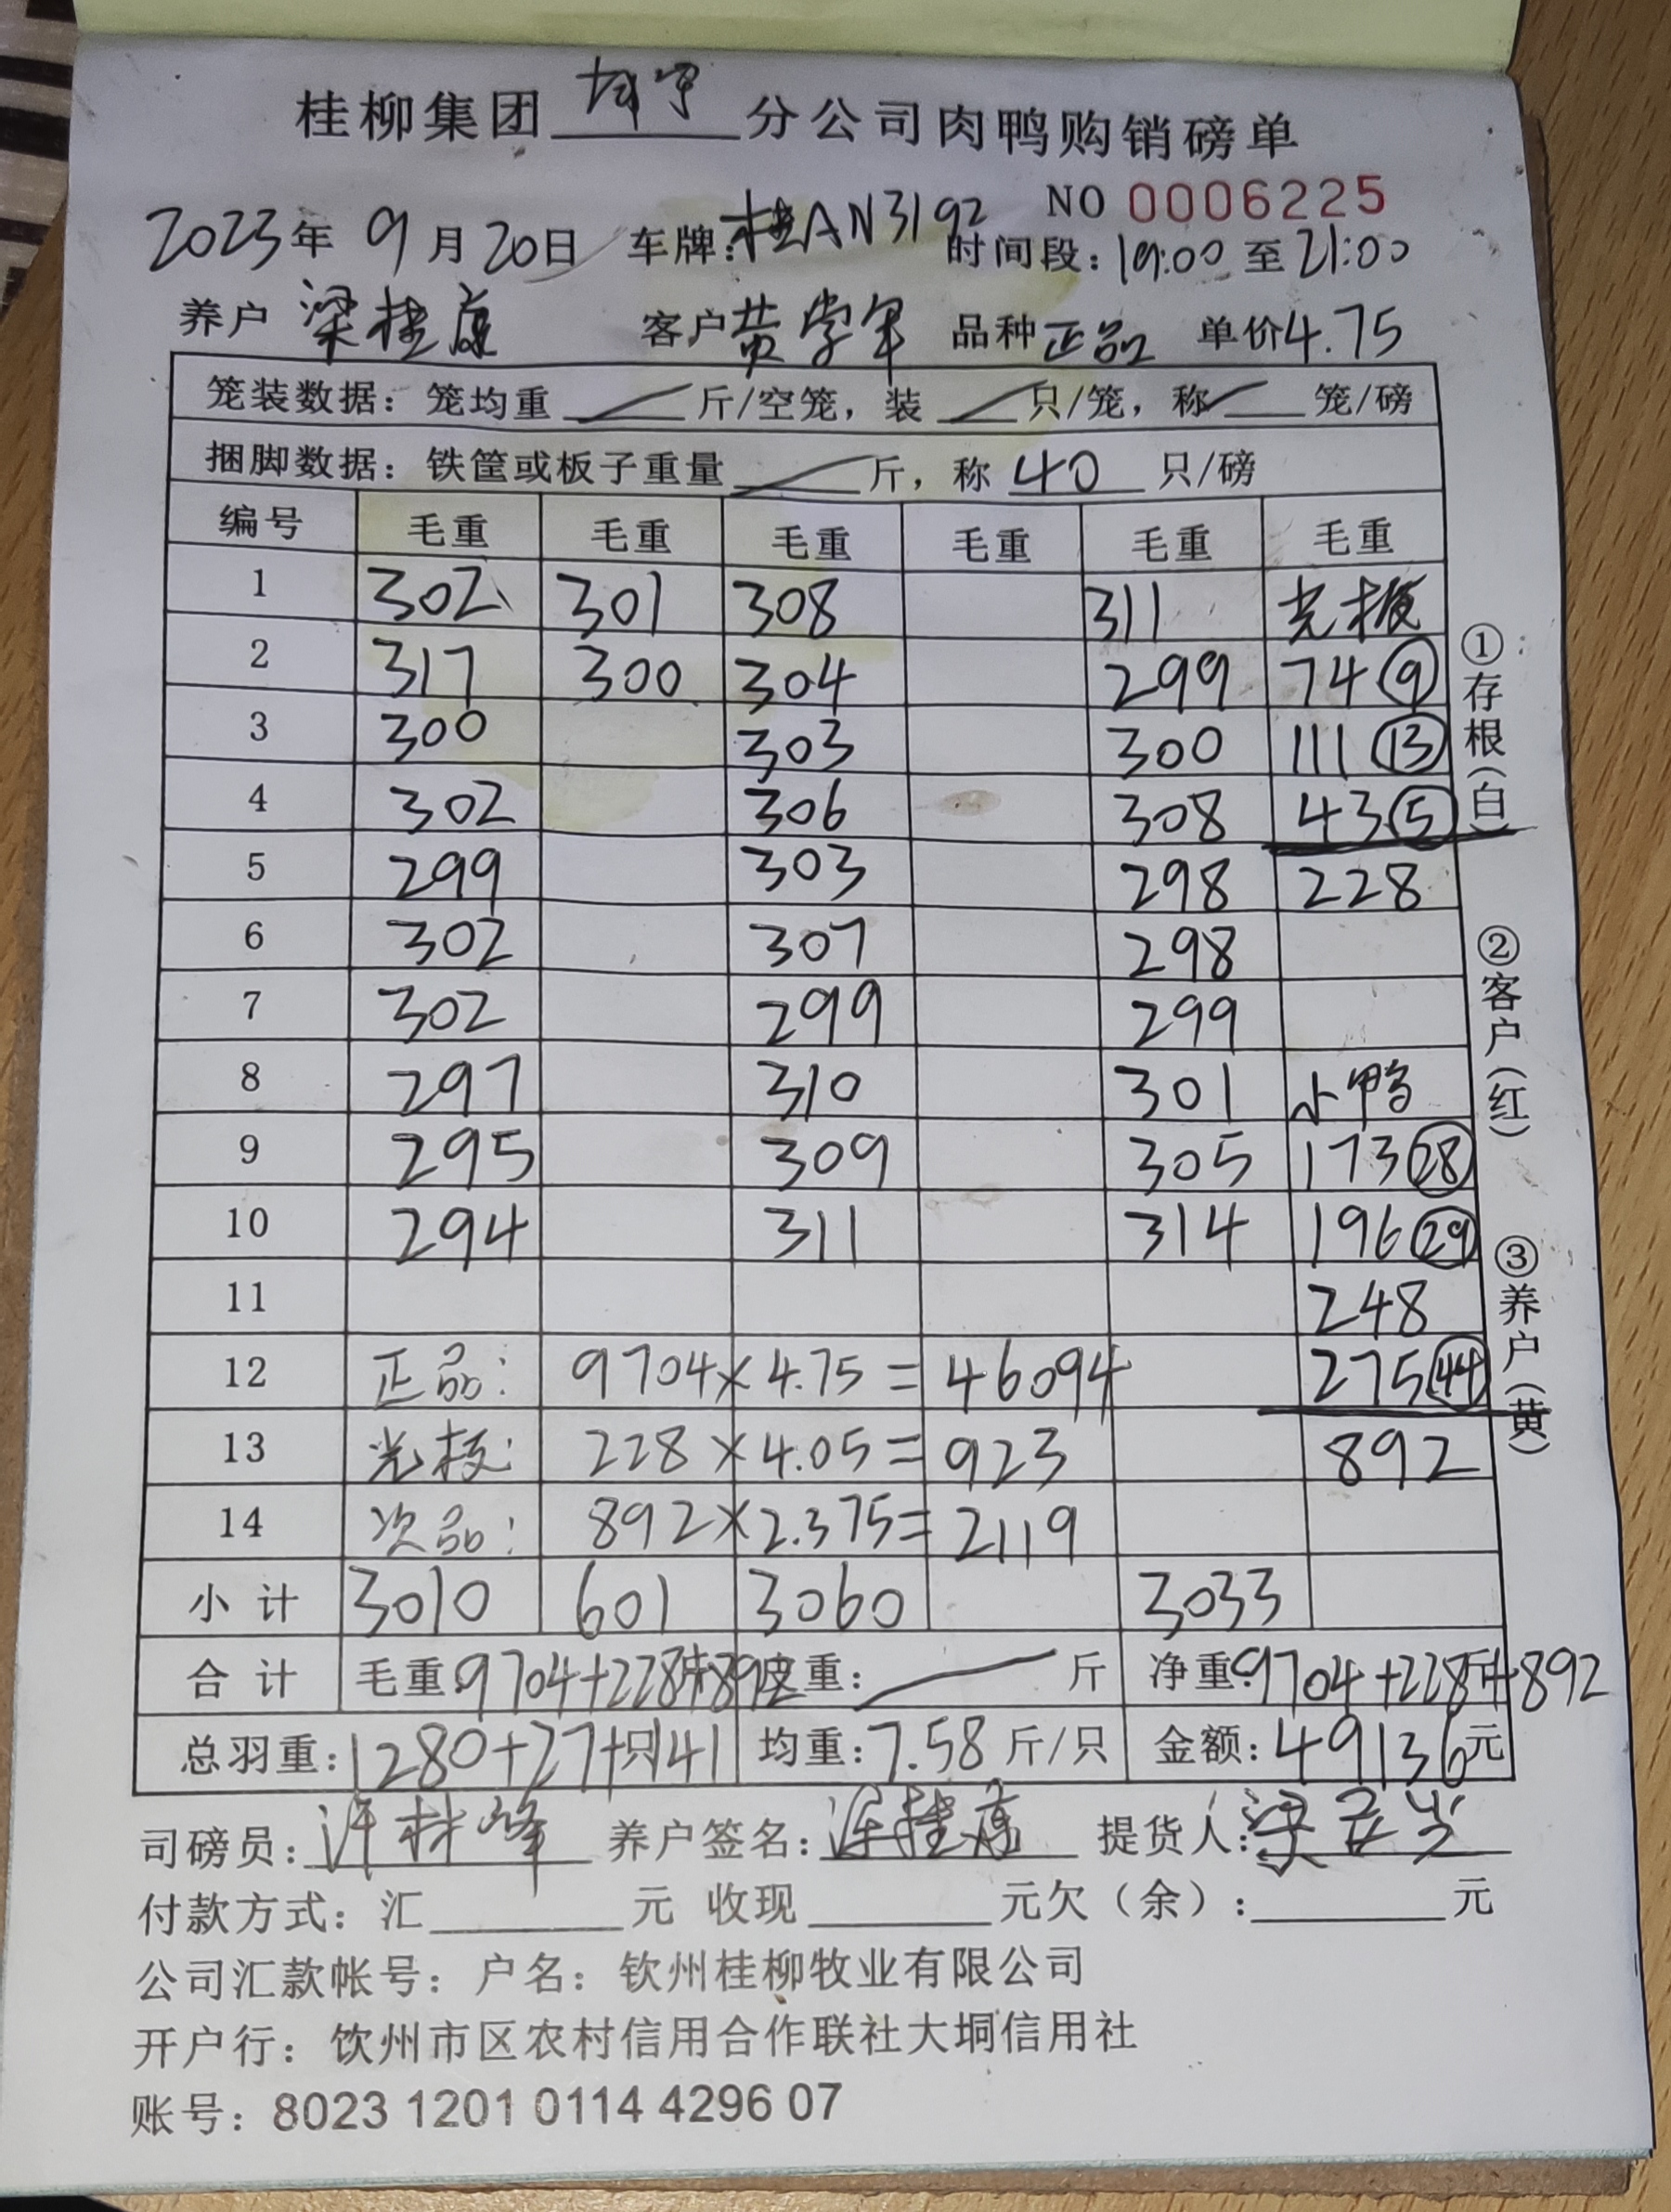 桂柳集团 分公司肉鸭购销磅单
NO 0006225
2023年 9月20日 车牌:桂AN3192 时间段:19:00 至 21:00
养户 梁桂康 客户 黄学军 品种 正品 单价 4.75
笼装数据: 笼均重 斤/空笼, 装 只/笼, 称 笼/磅
捆脚数据: 铁筐或板子重量 斤, 称 40 只/磅
编号 毛重 毛重 毛重 毛重 毛重 毛重
1 302 301 308 311 光板
2 317 300 304 299 74 ⑨
3 300 303 300 111 ⑬
4 302 306 308 43 ⑤
5 299 303 298 228
6 302 307 298
7 302 299 299
8 297 310 301 小鸭
9 295 309 305 173 ㉘
10 294 311 314 196 ㉙
11 248
12 正品: 9704×4.75= 46094 275 ㊹
13 光板: 228×4.05= 923 892
14 次品: 892×2.375= 2119
小计 3010 601 3060 3033
合计 毛重:9704+228+892 皮重: 斤 净重:9704+228+892 斤
总羽重:1280+27+141 只 均重:7.58 斤/只 金额:49136元
司磅员: 养户签名: 提货人:
付款方式: 汇 元 收现 元欠(余): 元
公司汇款帐号: 户名: 钦州桂柳牧业有限公司
开户行: 钦州市区农村信用合作联社大垌信用社
账号: 8023 1201 0114 4296 07
①存根(白)
②客户(红)
③养户(黄)